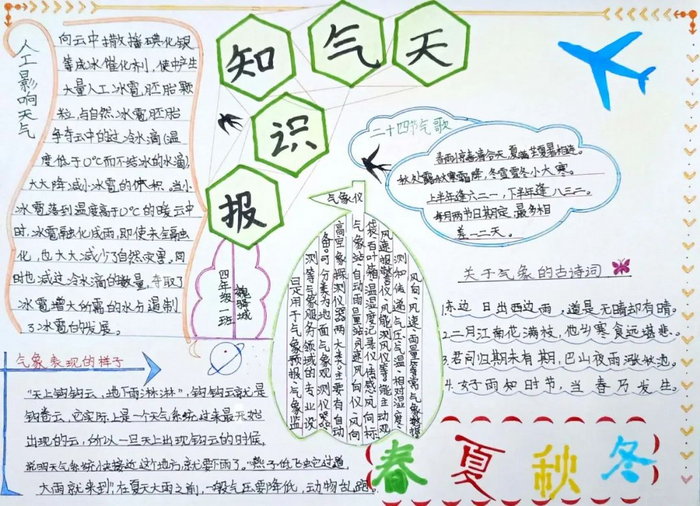 天气知识报
人工影响天气
向云中撒播碘化银
等成冰催化剂，使中产生
大量人工冰雹胚胎颗
粒，与自然冰雹胚胎
争夺云中的过冷水滴(温
度低于0℃而不结冰的水滴)
大大降减小冰雹的体积，当小
冰雹落到温度高于0℃的暖云中
时，冰雹融化成雨，即使未全融
化，也大大减少了自然灾害，同
时也减过冷水滴的数量，夺取了
冰雹增大所需的水分遏制
了冰雹台的发展。
四年级一班
二十四节气歌
春雨惊春清谷天，夏满芒夏暑相连。
秋处露秋寒霜降，冬雪雪冬小大寒。
上半年逢六二一，下半年逢八二三。
每月两节日期定，最多相
差一二天。
气象仪
风向、风速、雨量等常气象数据
测和传递气压、气温、相对湿度
风速报警仪、风能测风仪等。能主动观
袋、有叶箱温湿度记录仪、传感风向标
气象站、自动雨量站、风速风向仪、风向
高空气象探测仪器两大类。主要有自动
备。可分类为地面气象观测仪器和
测等气象服务领域的专业设
是用于气象预报、气象监
关于气象的古诗词
1.东边日出西边雨，道是无晴却有晴。
2.二月江南花满枝，他乡寒食远堪悲。
3.君问归期未有期，巴山夜雨涨秋池。
4.好雨知时节，当春乃发生。
气象表现的样子
"天上钩钩云，地下雨淋淋"，钩钩云就是
钩卷云，它实际上是一个天气系统过来最先
出现的云，所以一旦天上出现钩云的时候，
说明天气系统快接近这个地方，就要下雨了。"燕子低飞蛇过道，
大雨就来到"在夏天大雨之前，一般气压要降低，动物出
春夏秋冬